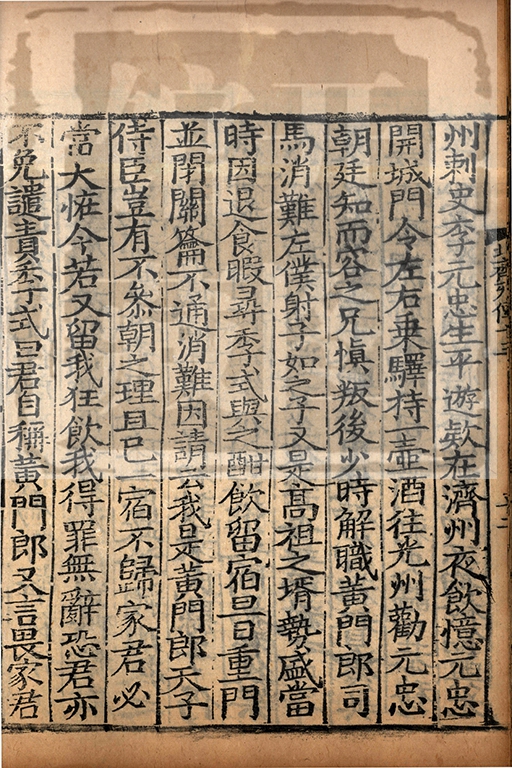 州刺史李元忠生平遊款在濟州夜飲憶元忠
開城門令左右乗驛持一壺酒往光州勸元忠
朝廷知而容之兄愼叛後少時解職黃門郎司
馬消難左僕射子如之子又是髙祖之壻勢盛當
時因退食暇尋季式與之酣飲留宿旦日重門
並閉關籥不通消難因請云我是黃門郎天子
侍臣豈有不叅朝之理且已一宿不歸家君必
當大怪今若又留我狂飲我得罪無辭恐君亦
不免譴責季式曰君自稱黃門郎又言畏家君